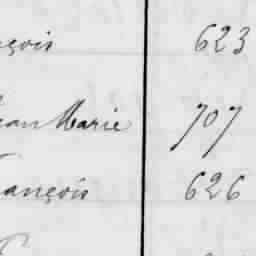 nçois 623
ean Marie 707
rançois 626